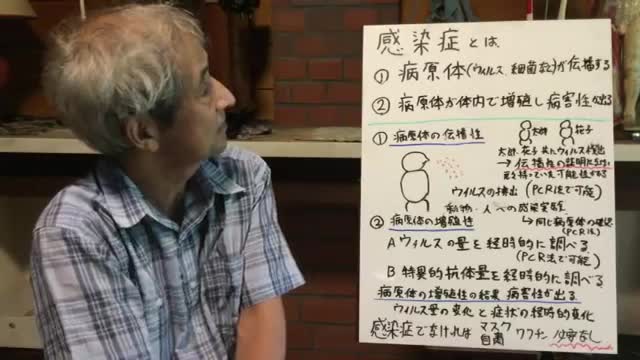 感染症とは
① 病原体(ウィルス、細菌など)が伝播する
② 病原体が体内で増殖し病害性が出る
① 病原体の伝播性
太郎 花子
太郎、花子共にウィルス検出
→ 伝播性の証明にならない
ウィルスの検出 (PCR法で可能)
動物・人への感染実験
→ 同じ病原体の確認
(PCR法)
② 病原体の増殖性
A ウィルスの量を経時的に調べる
(PCR法で可能)
B 特異的抗体量を経時的に調べる
病原体の増殖性の結果 病害性が出る
ウィルス量の変化と症状の経時的変化
感染症でなければ マスク 自粛 ワクチン 必要なし